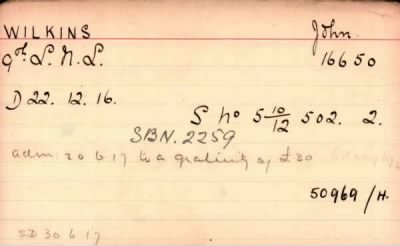 WILKINS John.
9th L.N.L. 16650
D 22. 12. 16.
S No 5 10/12 502. 2.
SBN. 2259
adm. 20 6 17 to a gratuity of £30
50969/H.
SD 30 6 17